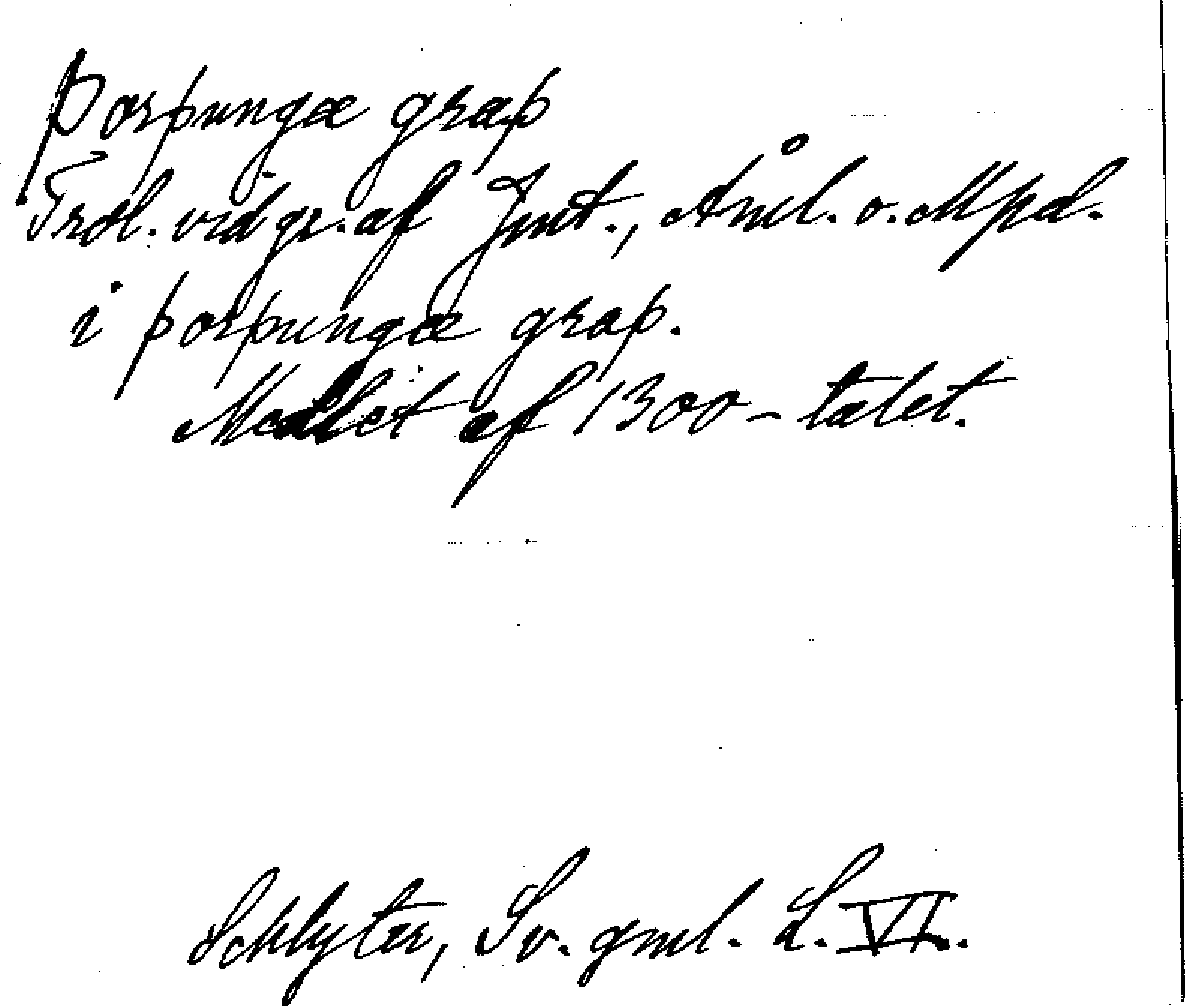 þorpungæ grap
Trol. vid gr. af Jmt., Ånl. o. Mpd.
i þorpungæ grap.
Medlet af 1300-talet.
Schlyter, Sv. gml. L. VI.